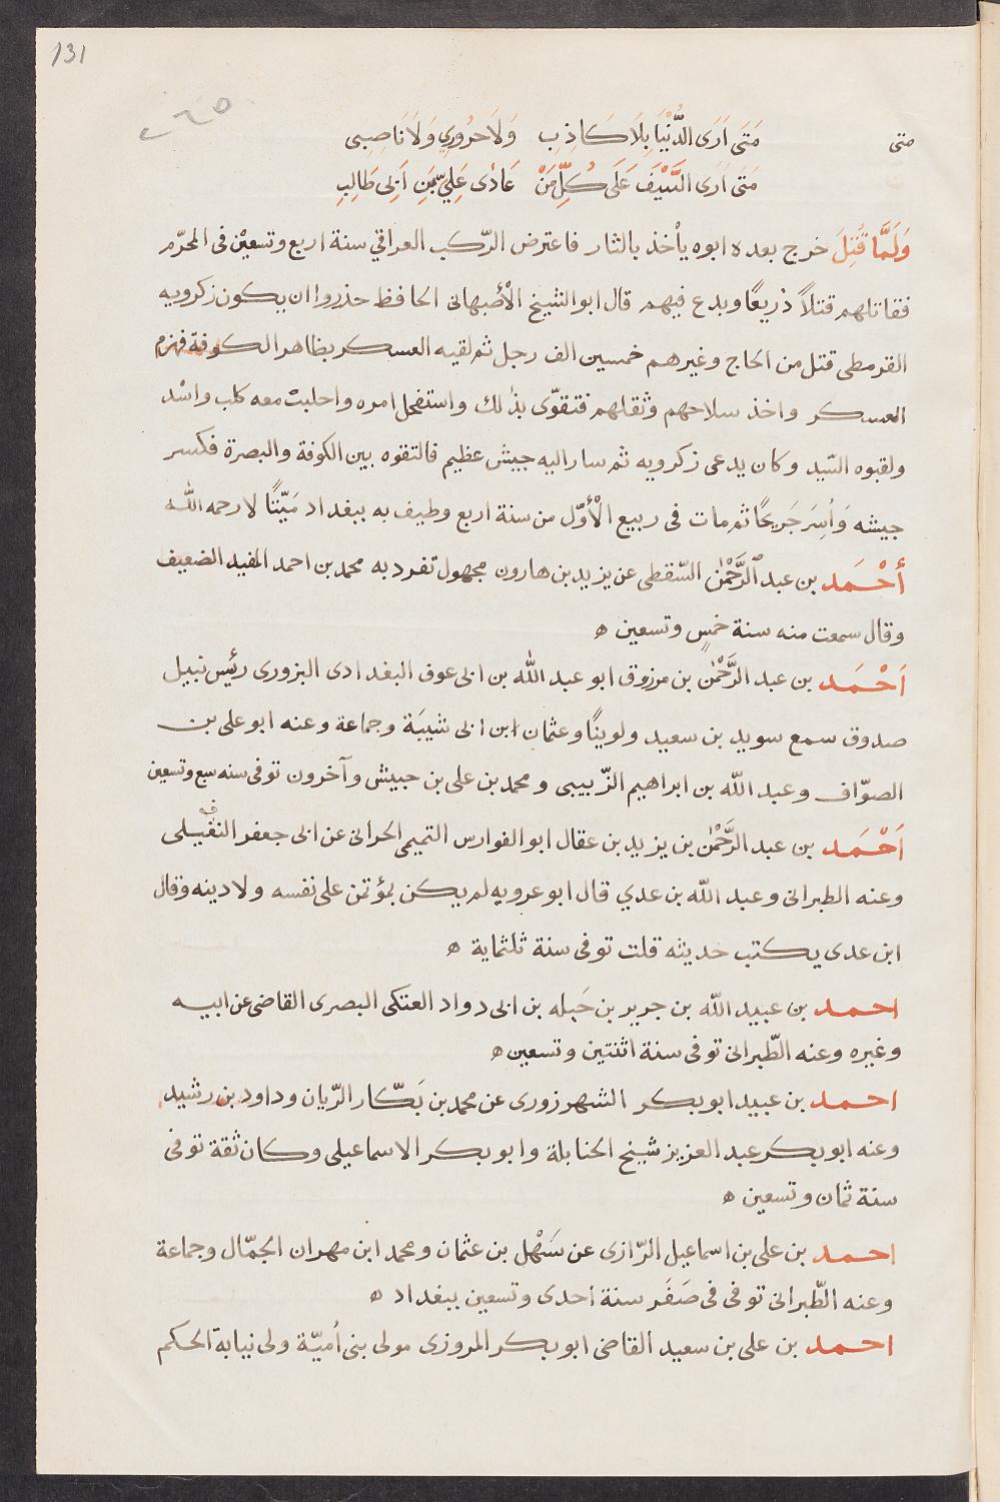 131
متى
مَتَى اَرَى الدُّنْيَا بِلَا كَاذِبِ وَلَا حَرُورِي وَلَا نَاصِبِى
مَتَى اَرَى السَّيْفَ عَلَى كُلِّ مَنْ عَادَى عَلِيّ بَنِ اَبِى طَالِبِ
وَلَمَّا قُتِلَ خرج بعده ابوه يأخذ بالثار فاعترض الرّكب العراقي سنة اربع وتسعيْن فى المحرّم
فقاتلهم قتلاً ذريعًا وبدع فيهم قال ابو الشيخ الأصبهانى الحافظ حذروا ان يكون زكرويه
القرمطى قتل من الحاج وغيرهم خمسين الف رجل ثم لقيه العسكر بظاهر الكوفة فهزم
العسكر واخذ سلاحهم وثقلهم فتقوّى بذلك واستفحل امره واحلبت معه كلب واسْد
ولقبوه السّيد وكان يدعى زكرويه ثم سار اليه جيش عظيم فالتقوه بين الكوفة والبصرة فكسر
جيشه وَاُسِرَ جَرِيحًا ثم مات فى ربيع الْأوّل من سنة اربع وطيف به ببغداد مَيّتًا لا رحمه الله
أحْمَد بن عبد الرَّحْمٰن السّقطى عن يزيد بن هارون مجهول تفرد به محمد بن احمد المفيد الضعيف
وقال سمعت منه سنة خمسٍ وتسعين ه
اَحْمَد بن عبد الرَّحْمٰن بن مرزوق ابو عبد الله بن ابى عوف البغدادى البزورى رئيس نبيل
صدوق سمع سويد بن سعيد ولوينًا وعثمان ابن ابى شيبَة وجماعة وعنه ابو على بن
الصوّاف وعبد الله بن ابراهيم الزّبيبى ومحمد بن على بن حبيش وآخرون توفى سنه سبع وتسعين
اَحْمَد بن عبد الرَّحْمٰن بن يزيد بن عقال ابو الفوارس التميمى الحرانى عن ابى جعفر النفيلى
وعنه الطبرانى وعبد الله بن عدي قال ابو عروبه لم يكن بمؤتمن على نفسه ولا دينه وقال
ابن عدى يكتب حديثه قلت توفى سنة ثلثماية ه
احمد بن عبيد الله بن جرير بن جَبله بن ابى دواد العتكى البصرى القاضى عن ابيه
وغيره وعنه الطّبرانى توفى سنة اثنتين وتسعين ه
احمد بن عبيد ابو بكر الشهرزورى عن محمد بن بَكّار الرّيان وداود بن رشيد
وعنه ابو بكر عبد العزيز شيخ الحنابلة وابو بكر الاسماعيلى وكان ثقة توفى
سنة ثمان وتسعين ه
احمد بن على بن اسماعيل الرّازى عن سَهْل بن عثمان ومحمد ابن مهران الجمّال وجماعة
وعنه الطّبرانى توفى فى صَفَر سنة احدى وتسعين ببغداد ه
احمد بن على بن سعيد القاضى ابو بكر المروزى مولى بنى اُميّة ولى نيابة الحكم